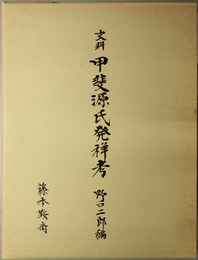 史料
甲斐源氏発祥考
野口二郎編
藤本鞍斎